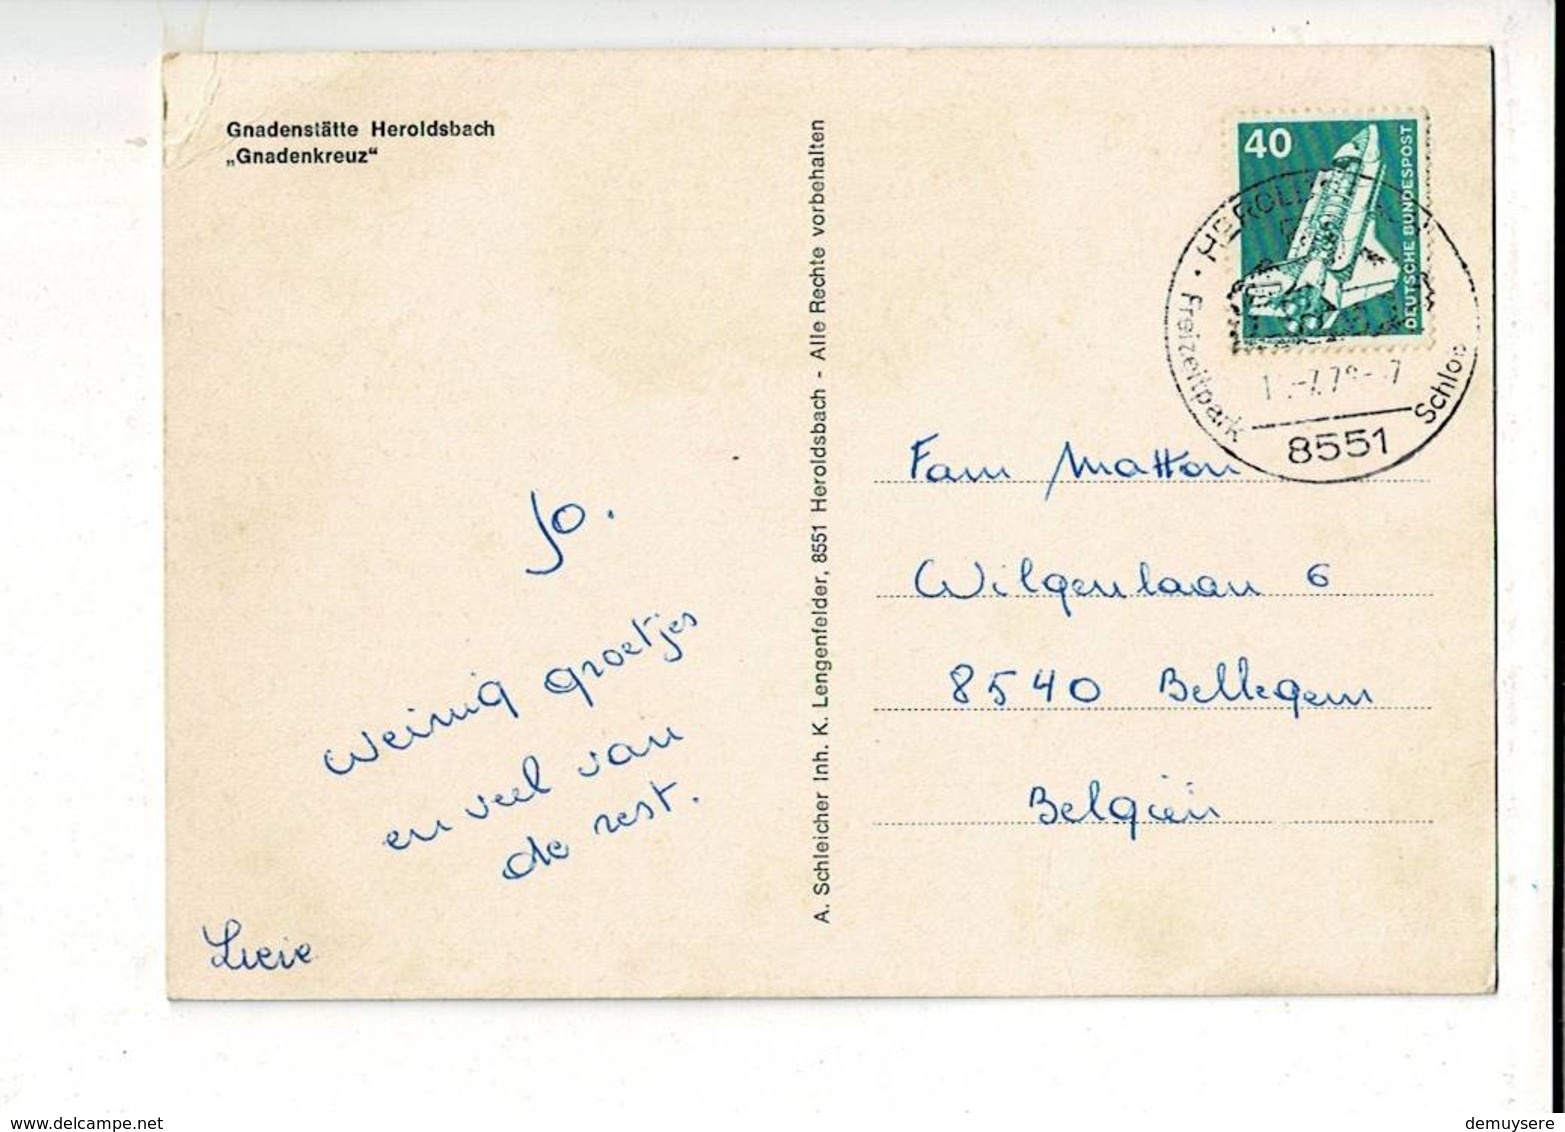 Gnadenstätte Heroldsbach
„Gnadenkreuz“
Jo.
weinig groetjes
en veel van
de rest.
Lieve
A. Schleicher Inh. K. Lengenfelder, 8551 Heroldsbach - Alle Rechte vorbehalten
40
DEUTSCHE BUNDESPOST
Freizeitpark
Schloß
8551
Fam Matton
Wilgenlaan 6
8540 Bellegem
Belgiën
www.delcampe.net
demuysere